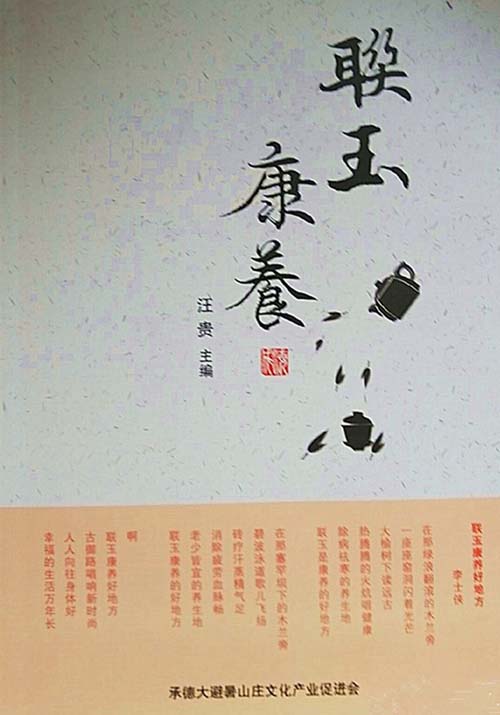 聯玉
康養
汪贵 主编
联玉康养好地方
李士侠
在那绿浪翻滚的木兰旁
一座座窑洞闪着光芒
大榆树下读远古
热腾腾的火炕唱健康
除病祛寒的养生地
联玉是康养的好地方
在那塞罕坝下的木兰旁
碧波泳道歌儿飞扬
砖疗汗蒸精气足
消除疲劳血脉畅
老少皆宜的养生地
联玉康养的好地方
啊
联玉康养好地方
古御路唱响新时尚
人人向往身体好
幸福的生活万年长
承德大避暑山庄文化产业促进会